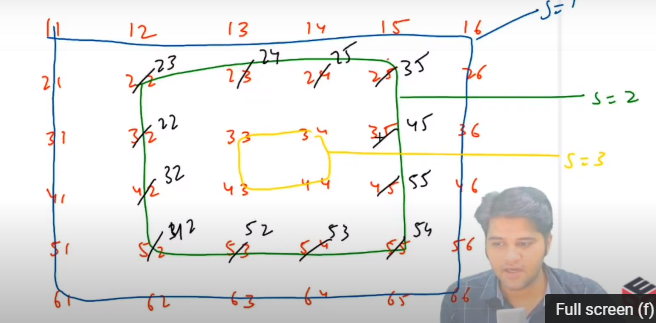 11 12 13 14 15 16 S=1
21 22 23 23 24 24 25 25 35 26 S=2
31 32 22 33 34 35 45 36 S=3
41 42 32 43 44 45 55 46
51 52 42 53 52 54 53 55 54 56
61 62 63 64 65 66
Full screen (f)